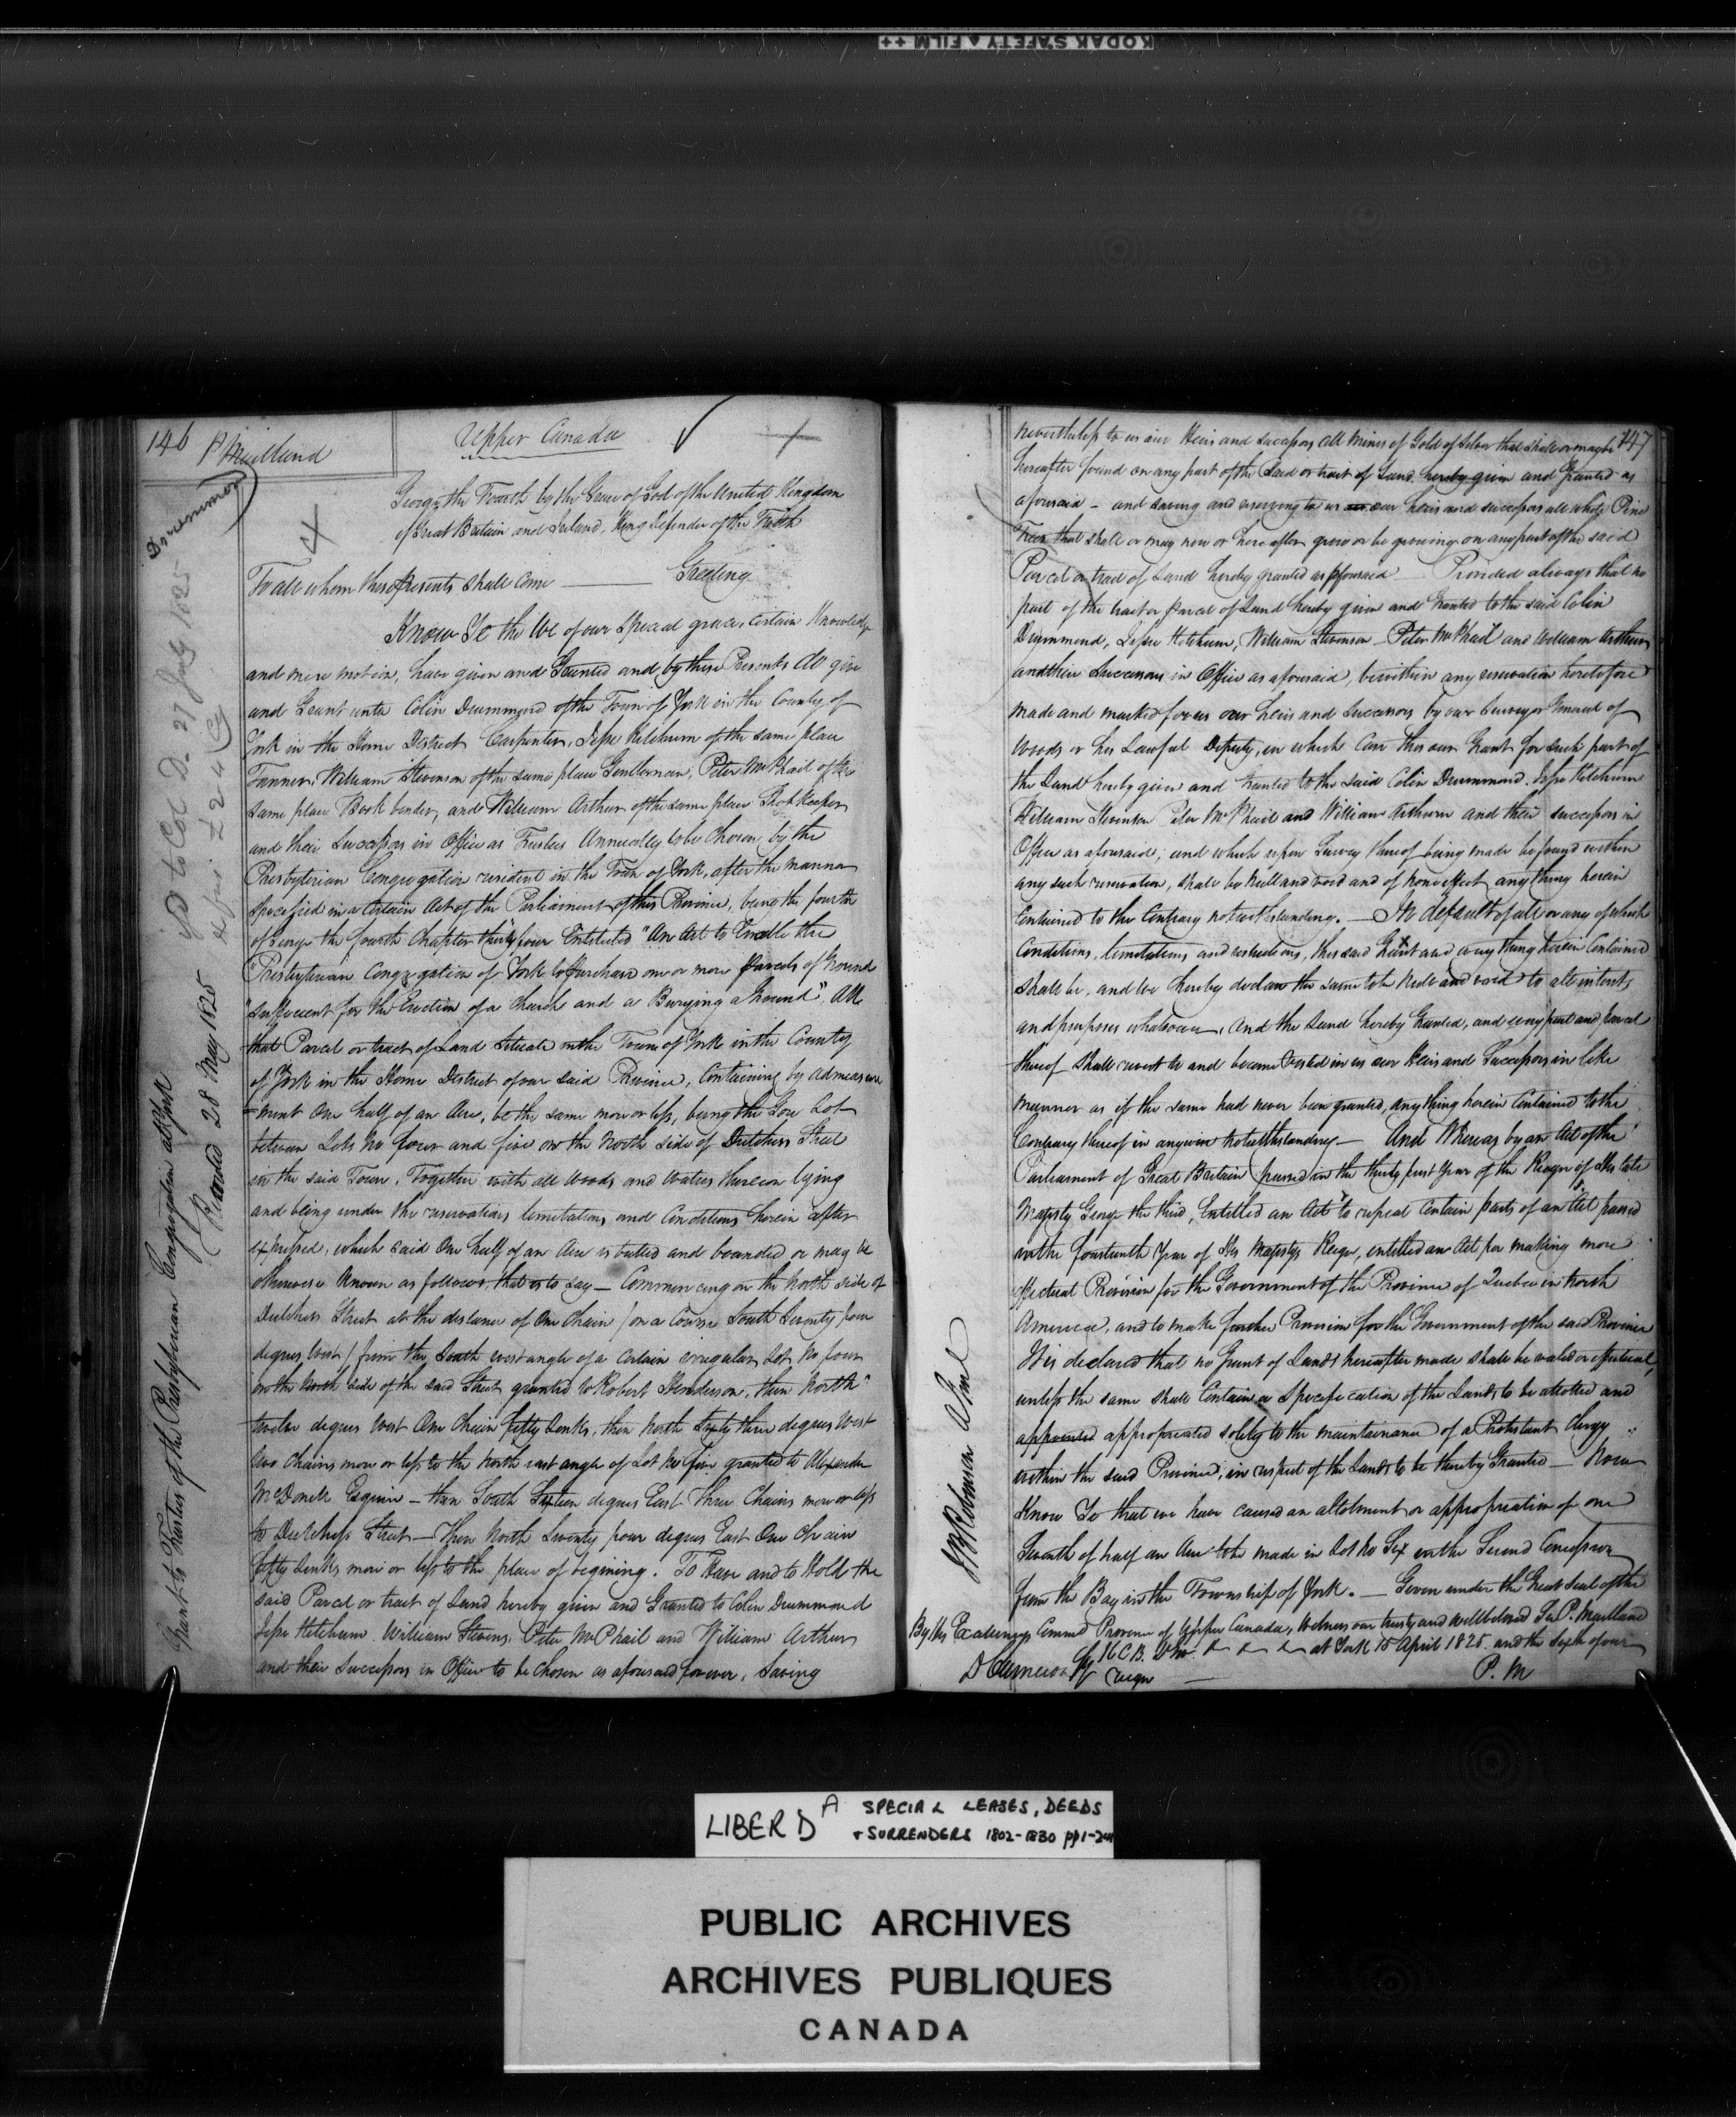 KODAK SAFETY FILM ++
146
P Maitland
Drummond
Upper Canada
George the Fourth by the Grace of God of the United Kingdom
of Great Britain and Ireland, King Defender of the Faith
To all whom these Presents shall Come — Greeting
Know Ye that We of our Special grace, Certain Knowledge
and mere motion, have given and Granted and by these Presents do give
and Grant unto Colin Drummond of the Town of York in the County of
York in the Home District Carpenter, Jesse Ketchum of the same place
Tanner, William Stevenson of the same place Gentleman, Peter McPhail of the
same place Book binder, and William Arthur of the same place Shop Keeper
and their Successors in Office as Trustees Annually to be Chosen by the
Presbyterian Congregation resident in the Town of York, after the manner
specified in a Certain Act of the Parliament of this Province, being the fourth
of George the fourth Chapter thirty four Entituled "An Act to Enable the
Presbyterian Congregation of York to Purchase one or more Parcels of Ground
"sufficient for the Erection of a Church and a Burying Ground". All
that Parcel or tract of Land Situate in the Town of York in the County
of York in the Home District of our said Province, Containing by admeasure
-ment One half of an Acre, be the same more or less, being the Gore Lot
between Lots No four and five on the North side of Dutchess Street
in the said Town, Together with all Woods and Waters thereon lying
and being under the reservations limitations and Conditions herein after
expressed, which said One half of an Acre is butted and bounded or may be
otherwise Known as follows, that is to say — Commencing on the North side of
Dutchess Street at the distance of One Chain / on a Course South Seventy four
degrees West / from the South west angle of a Certain irregular Lot No four
on the North side of the said Street granted to Robert Henderson, then North
twelve degrees West One Chain fifty Links, then North Sixty three degrees West
two Chains more or less to the North east angle of Lot No five granted to Alexander
McDonell Esquire — then South Sixteen degrees East Three Chains more or less
to Dutchess Street — Then North Seventy four degrees East One Chain
fifty Links more or less to the place of begining. To Have and to Hold the
said Parcel or tract of Land hereby given and Granted to Colin Drummond
Jesse Ketchum William Stevens, Peter McPhail and William Arthur
and their Successors in Office to be Chosen as aforesaid for ever, Saving
Grant to Trustees of the Presbyterian Congregation at York
(Recorded 28 May 1825
to Col D. 27 July 1825
£2 4
147
nevertheless to us our Heirs and Successors all Mines of Gold of Silver that shall or may be
hereafter found on any part of the Said or tract of Land hereby given and Granted as
aforesaid — and saving and reserving to us our heirs and successors all White Pine
Trees that shall or may now or hereafter grow or be growing on any part of the said
Parcel or tract of Land hereby granted as aforesaid — Provided always that no
part of the tract or Parcel of Land hereby given and Granted to the said Colin
Drummond, Jesse Ketchum, William Stevenson Peter McPhail and William Arthur
and their Successors in Office as aforesaid, be within any reservation heretofore
made and marked for us our heirs and Successors by our Surveyor General of
Woods or his Lawful Deputy, in which Case this our Grant for such part of
the Land hereby given and Granted to the said Colin Drummond, Jesse Ketchum
William Stevenson Peter McPhail and William Arthur and their successors in
Office as aforesaid; and which upon Survey thereof being made be found within
any such reservation, shall be Null and void and of none effect any thing herein
Contained to the Contrary notwithstanding. — In default of all or any of which
Conditions, limitations and restrictions, this said Grant and every thing herein Contained
shall be, and We hereby declare the same to be Null and void to all intents
and purposes whatsoever, And the Land hereby Granted, and every part and parcel
thereof shall revert to and become Vested in us our Heirs and Successors in like
manner as if the same had never been granted, any thing herein Contained to the
Contrary thereof in anywise notwithstanding — And Whereas by an Act of the
Parliament of Great Britain passed in the thirty first Year of the Reign of His late
Majesty George the third, Entitled an Act to repeal Certain parts of an Act passed
in the fourteenth Year of His Majestys Reign, entitled an Act for making more
effectual Provision for the Government of the Province of Quebec in North
America, and to make further Provision for the Government of the said Province
It is declared that no Grant of Lands hereafter made shall be valid or effectual,
unless the same shall Contain a Specification of the Lands to be allotted and
appointed appropriated solely to the maintainance of a Protestant Clergy
within the said Province, in respect of the Lands to be thereby Granted — Now
Know Ye that we have caused an allotment or appropriation of one
Seventh of half an Acre to be made in Lot No Six in the Second Concession
from the Bay in the Township of York. — Given under the Great Seal of the
Province of Upper Canada, Witness our trusty and well beloved Sir P. Maitland
K C B. at York 15 April 1825 and the sixth of our
reign — P. M
J B Robinson A Gnl
By His Excellencys Command
D Cameron
LIBER D A SPECIAL LEASES, DEEDS
+ SURRENDERS 1802-1830
PUBLIC ARCHIVES
ARCHIVES PUBLIQUES
CANADA